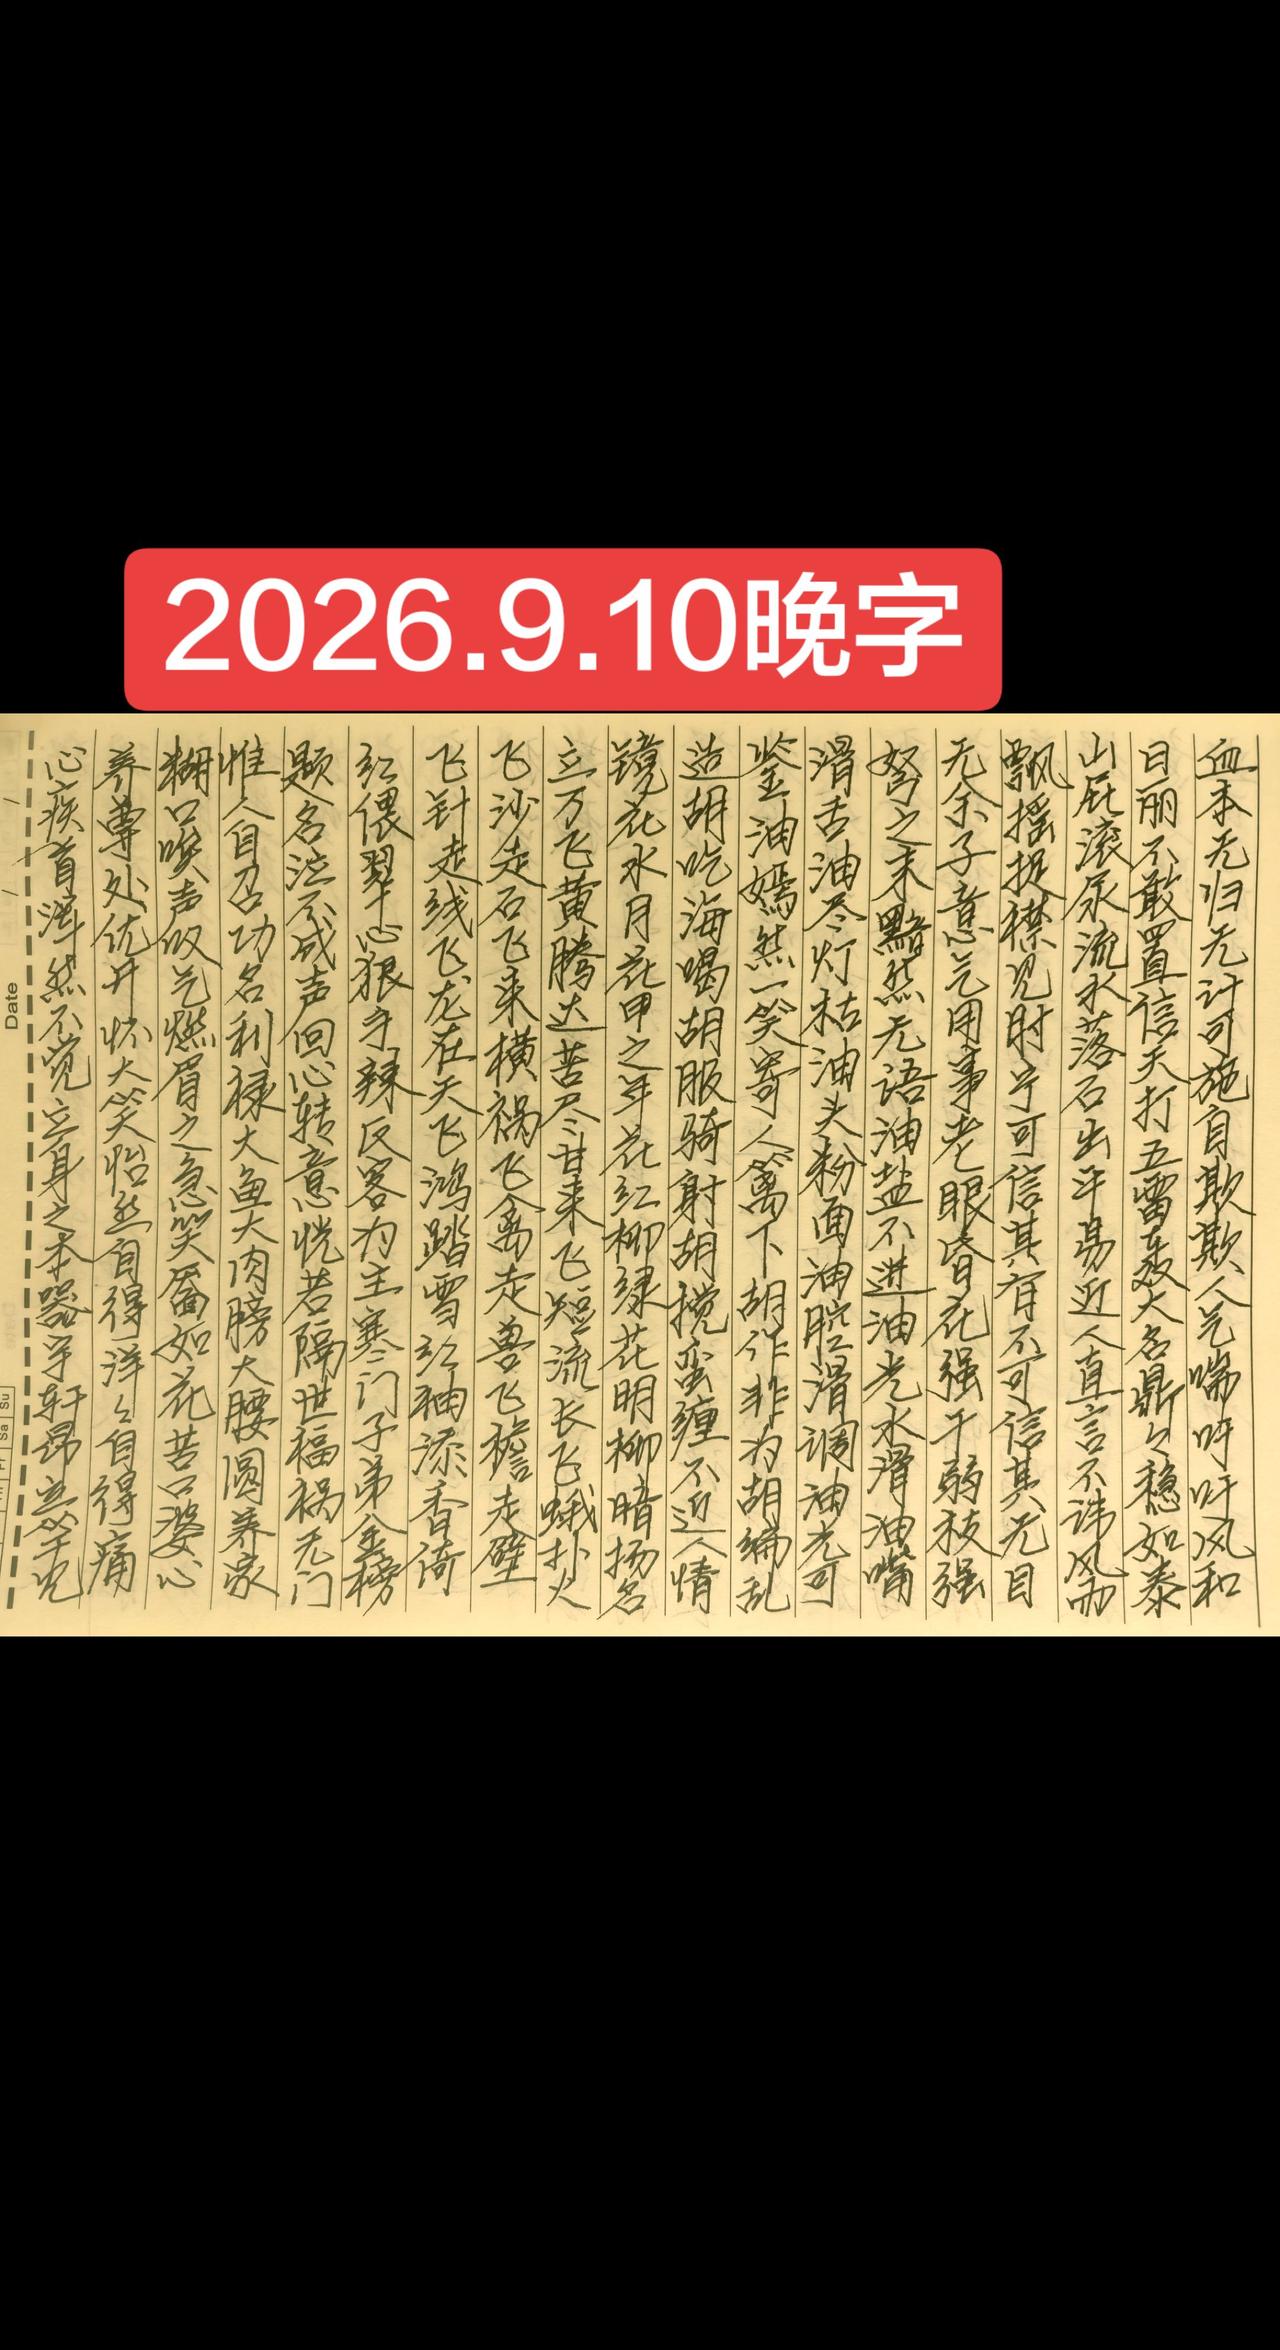 2026.9.10晚字
血本无归无计可施自欺欺人气喘吁吁风和
日丽不敢置信天打五雷轰大名鼎々稳如泰
山屁滚尿流水落石出平易近人直言不讳风雨
飘摇捉襟见肘宁可信其有不可信其无目
无余子意气用事老眼昏花强干弱枝强
弩之末黯然无语油盐不进油光水滑油嘴
滑舌油尽灯枯油头粉面油腔滑调油光可
鉴油嫣然一笑寄人篱下胡作非为胡编乱
造胡吃海喝胡服骑射胡搅蛮缠不近人情
镜花水月花甲之年花红柳绿花明柳暗扬名
立万飞黄腾达苦尽甘来飞短流长飞蛾扑火
飞沙走石飞来横祸飞禽走兽飞檐走壁
飞针走线飞龙在天飞鸿踏雪红袖添香倚
红偎翠心狠手辣反客为主寒门子弟金榜
题名泣不成声回心转意恍若隔世福祸无门
惟人自召功名利禄大鱼大肉膀大腰圆养家
糊口唉声叹气燃眉之急笑靥如花苦口婆心
养尊处优开怀大笑怡然自得洋々自得痛
心疾首浑然不觉立身之本器宇轩昂
Date
Fr Sa Su